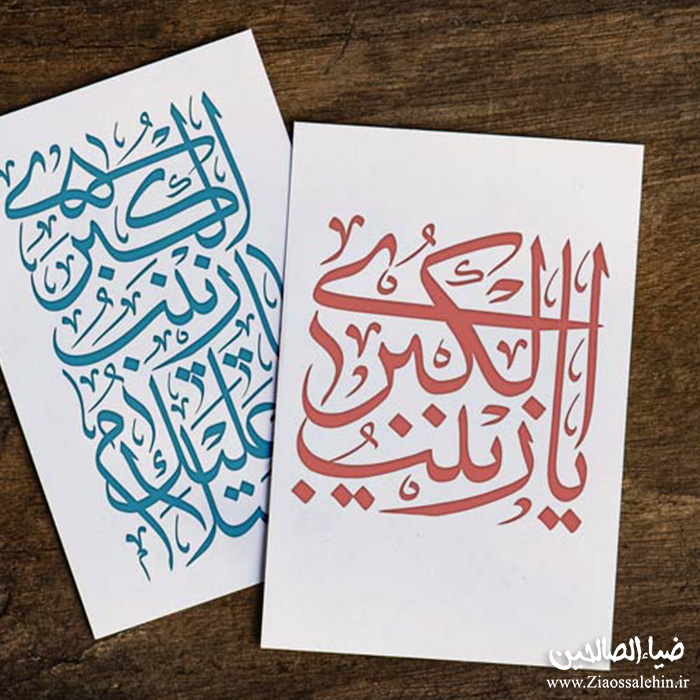 السلام علیک
یا زینب
الکبری
یا زینب
الکبری
ضیاءالصالحین
www.Ziaossalehin.ir